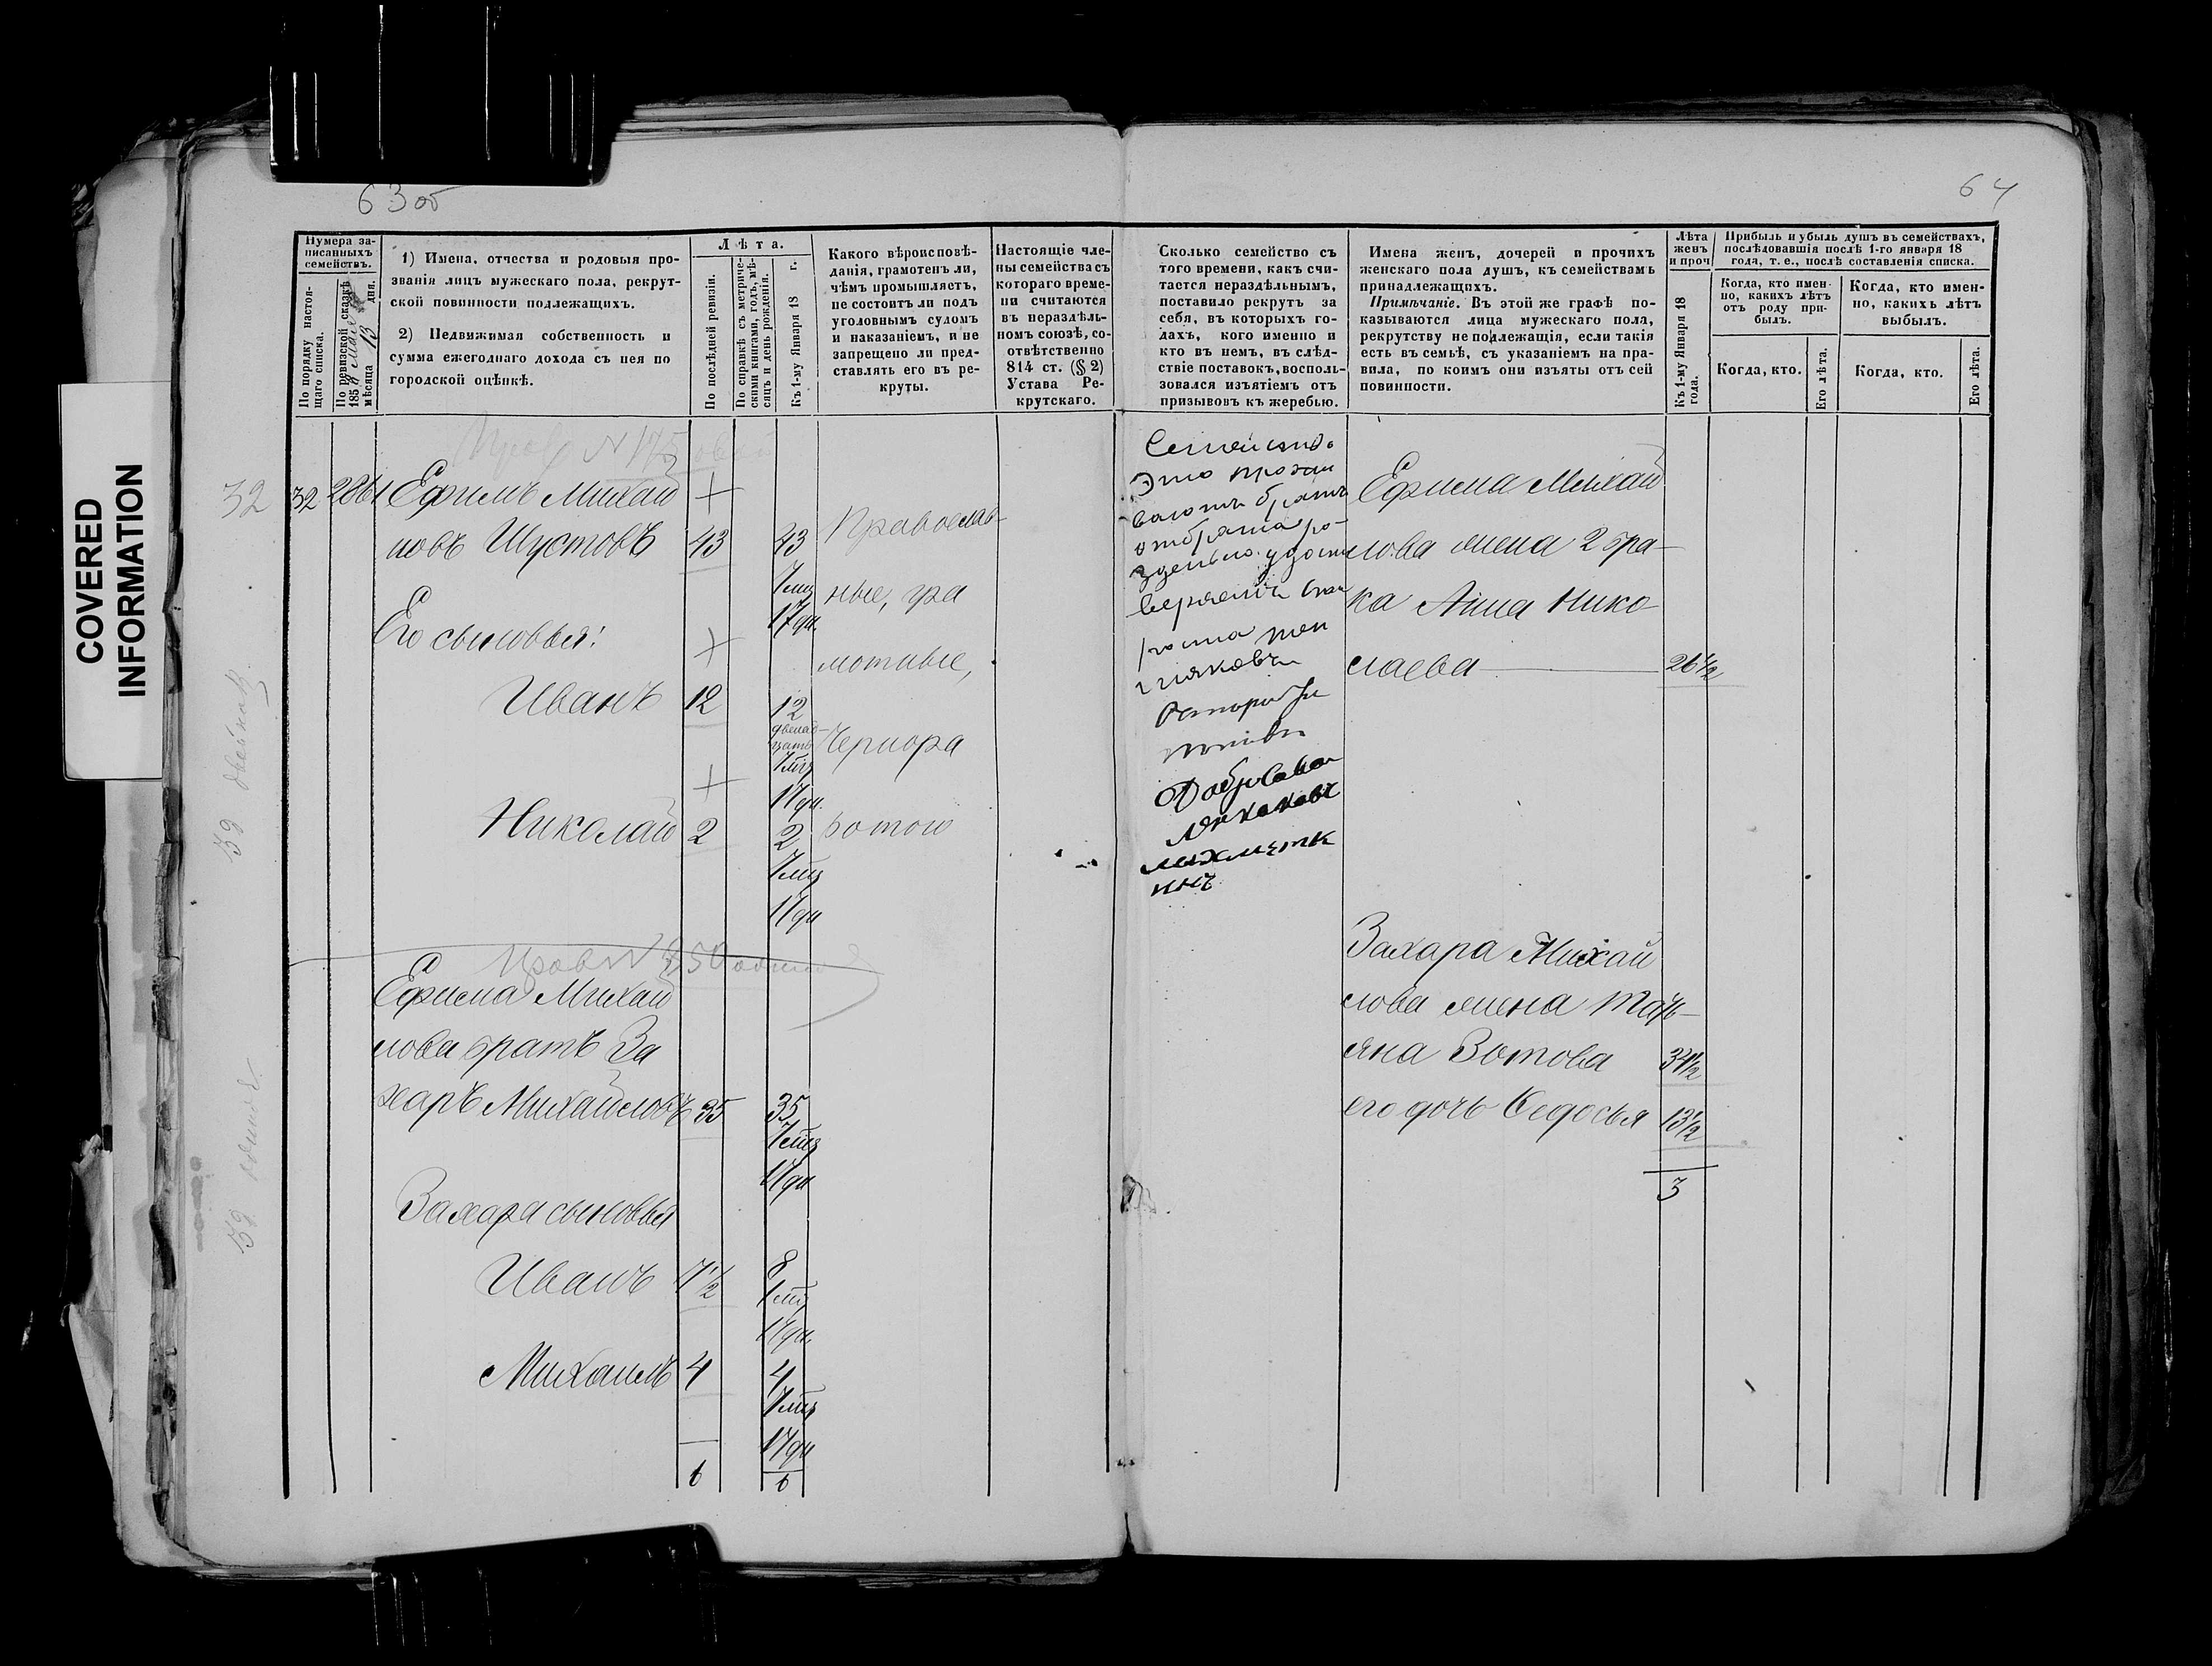 COVERED
INFORMATION
63об
64
Нумера за-
писанныхъ
семействъ.
По порядку настоя-
щаго списка.
По ревизской сказкѣ
1858 мая
мѣсяца 13 дня.
1) Имена, отчества и родовыя про-
званія лицъ мужескаго пола, рекрут-
ской повинности подлежащихъ.
2) Недвижимая собственность и
сумма ежегоднаго дохода съ нея по
городской оцѣнкѣ.
Лѣта.
По послѣдней ревизіи.
По справкѣ съ метриче-
скими книгами, годъ, мѣ-
сяцъ и день рожденія.
Къ 1-му Января 18 г.
Какого вѣроисповѣ-
данія, грамотенъ ли,
чѣмъ промышляетъ,
не состоитъ ли подъ
уголовнымъ судомъ
и наказаніемъ, и не
запрещено ли пред-
ставлять его въ ре-
круты.
Настоящіе чле-
ны семейства съ
котораго време-
ни считаются
въ нераздѣль-
номъ союзѣ, со-
отвѣтственно
814 ст. (§ 2)
Устава Ре-
крутскаго.
Сколько семейство съ
того времени, какъ счи-
тается нераздѣльнымъ,
поставило рекрутъ за
себя, въ которыхъ го-
дахъ, кого именно и
кто въ немъ, въ слѣд-
ствіе поставокъ, восполь-
зовался изъятіемъ отъ
призывовъ къ жеребью.
Имена женъ, дочерей и прочихъ
женскаго пола душъ, къ семействамъ
принадлежащихъ.
Примѣчаніе. Въ этой же графѣ по-
казываются лица мужескаго пола,
рекрутству не подлежащія, если такія
есть въ семьѣ, съ указаніемъ на пра-
вила, по коимъ они изъяты отъ сей
повинности.
Лѣта
женъ
и проч
Къ 1-му Января 18
года.
Прибыль и убыль душъ въ семействахъ,
послѣдовавшія послѣ 1-го января 18
года, т. е., послѣ составленія списка.
Когда, кто имен-
но, какихъ лѣтъ
отъ роду при-
былъ.
Когда, кто имен-
но, какихъ лѣтъ
выбылъ.
Когда, кто.
Его лѣта.
Когда, кто.
Его лѣта.
N 175
32 32 2861 Ефимъ Михай
ловъ Шустовъ 43 43
7 мц
17 дн.
Его сыновья:
Иванъ 12 12
двенад-
цать
7 мц
17 дн.
Николай 2 2
7 мц
17 дн
Православ-
ные, гра
мотные,
Чернора
ботою
Семейство
Это прожи
вают братъ
отъ брата ро-
здельно удосто
веряетъ
роста
Добровол
Ефима Михай
лова жена 2 бра-
ка Анна Нико
лаева 26 1/2
Ефима Михай
лова братъ За
харъ Михайловъ 35 35
7 мц
17 дн
Захара сыновья
Иванъ 7 1/2 8
1 мц
17 дн.
Михаилъ 4 4
7 мц
17 дн
6 6
Захара Михай
лова жена Тать-
яна Зотова 34 1/2
его дочь Федосья 13 1/2
3